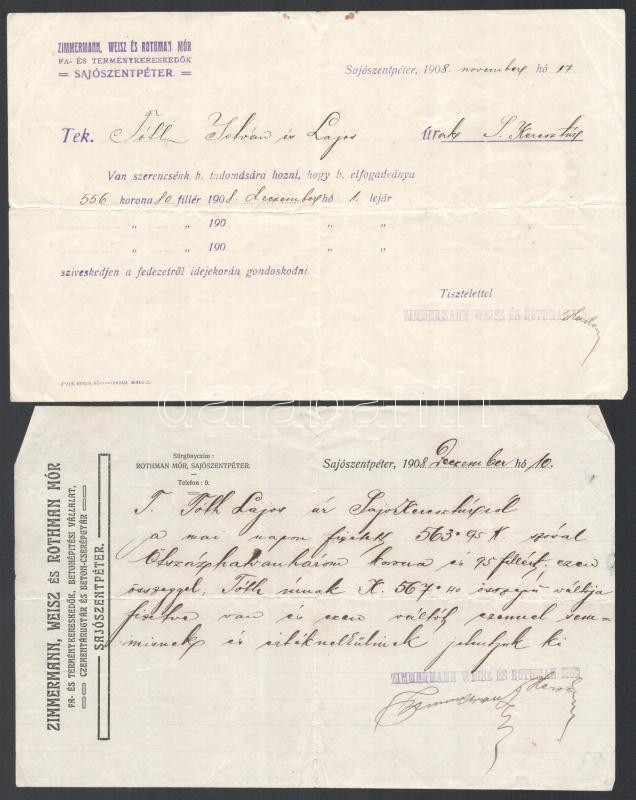 ZIMMERMANN, WEISZ ÉS ROTHMAN MÓR
FA- ÉS TERMÉNYKERESKEDŐK
SAJÓSZENTPÉTER.
Sajószentpéter, 1908. november hó 17
Tek. Tóth István és Lajos Úrak S. Keresztúr
Van szerencsénk b. tudomására hozni, hogy b. elfogadványa
556 korona 80 fillér 1908. deczember hó 1. lejár
„ „ 190 „ „
„ „ 190 „ „
sziveskedjen a fedezetről idejekorán gondoskodni.
Tisztelettel
ZIMMERMANN WEISZ ÉS ROTHMAN
darabanth
Sürgönyczim:
ROTHMAN MÓR, SAJÓSZENTPÉTER.
Telefon: 9.
Sajószentpéter, 1908 Deczember hó 10.
ZIMMERMANN, WEISZ ÉS ROTHMAN MÓR
FA- ÉS TERMÉNYKERESKEDŐK, BETONÉPITÉSI VÁLLALAT,
CZEMENTÁRUGYÁR ÉS BETON-CSERÉPGYÁR
SAJÓSZENTPÉTER.
T. Tóth Lajos úr Sajókeresztúrról
a mai napon fizetett 563.95 K szóval
Ötszázhatvanhárom korona és 95 fillért, ezen
összeggel, Tóth úrnak K. 567.40 összegű váltója
fizetve van és ezen váltót ezennel sem-
misnek és értéknélkülinek jelentjük ki
ZIMMERMANN WEISZ ÉS ROTHMAN MÓR